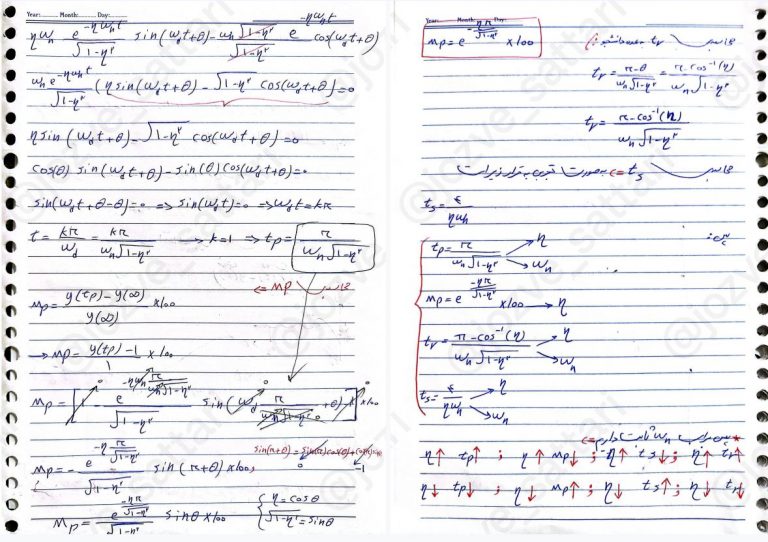 Year: Month: Day:
ηωₙ e^(-ηωₙt)/√(1-η²) sin(ω_d t+θ) - ωₙ√(1-η²)/√(1-η²) e^(-ηωₙt) cos(ω_d t+θ)
ωₙe^(-ηωₙt)/√(1-η²) (η sin(ω_d t+θ) - √(1-η²) cos(ω_d t+θ))=0
η sin(ω_d t+θ) - √(1-η²) cos(ω_d t+θ)=0
cos(θ) sin(ω_d t+θ) - sin(θ) cos(ω_d t+θ)=0
sin(ω_d t+θ-θ)=0 => sin(ω_d t)=0 => ω_d t=kπ
t = kπ/ω_d = kπ/(ωₙ√(1-η²)) → k=1 → tp = π/(ωₙ√(1-η²))
محاسبه MP <=
Mp = (y(tp)-y(∞))/y(∞) ×100
→ Mp = (y(tp)-1)/1 ×100
Mp = [1 - e^(-ηωₙ π/(ωₙ√(1-η²)))/√(1-η²) sin(ω_d π/(ωₙ√(1-η²))+θ) - 1] ×100
sin(π+θ) = sin(π)cos(θ)+cos(π)sin(θ)
0 -1
Mp = - e^(-η π/√(1-η²))/√(1-η²) sin(π+θ) ×100
Mp = e^(-ηπ/√(1-η²))/√(1-η²) sinθ ×100 { η=cosθ
√(1-η²)=sinθ
Year: Month: Day:
Mp = e^(-ηπ/√(1-η²)) ×100
محاسبه tr
tr = (π-θ)/(ωₙ√(1-η²)) = (π-cos⁻¹(η))/(ωₙ√(1-η²))
tr = (π-cos⁻¹(η))/(ωₙ√(1-η²))
محاسبه ts <= به صورت تقریبی برقرار زیر است
ts = ۴/(ηωₙ)
پس:
tp = π/(ωₙ√(1-η²)) → η
→ ωₙ
Mp = e^(-ηπ/√(1-η²)) ×100 → η
tr = (π-cos⁻¹(η))/(ωₙ√(1-η²)) → η
→ ωₙ
ts = ۴/(ηωₙ) → η
→ ωₙ
* پس ωₙ ثابت داریم <=
η↑ tp↑ ; η↑ Mp↓ ; η↑ ts↓ ; η↑ tr↑
η↓ tp↓ ; η↓ Mp↑ ; η↓ ts↑ ; η↓ tr↓
@jozve_sattari